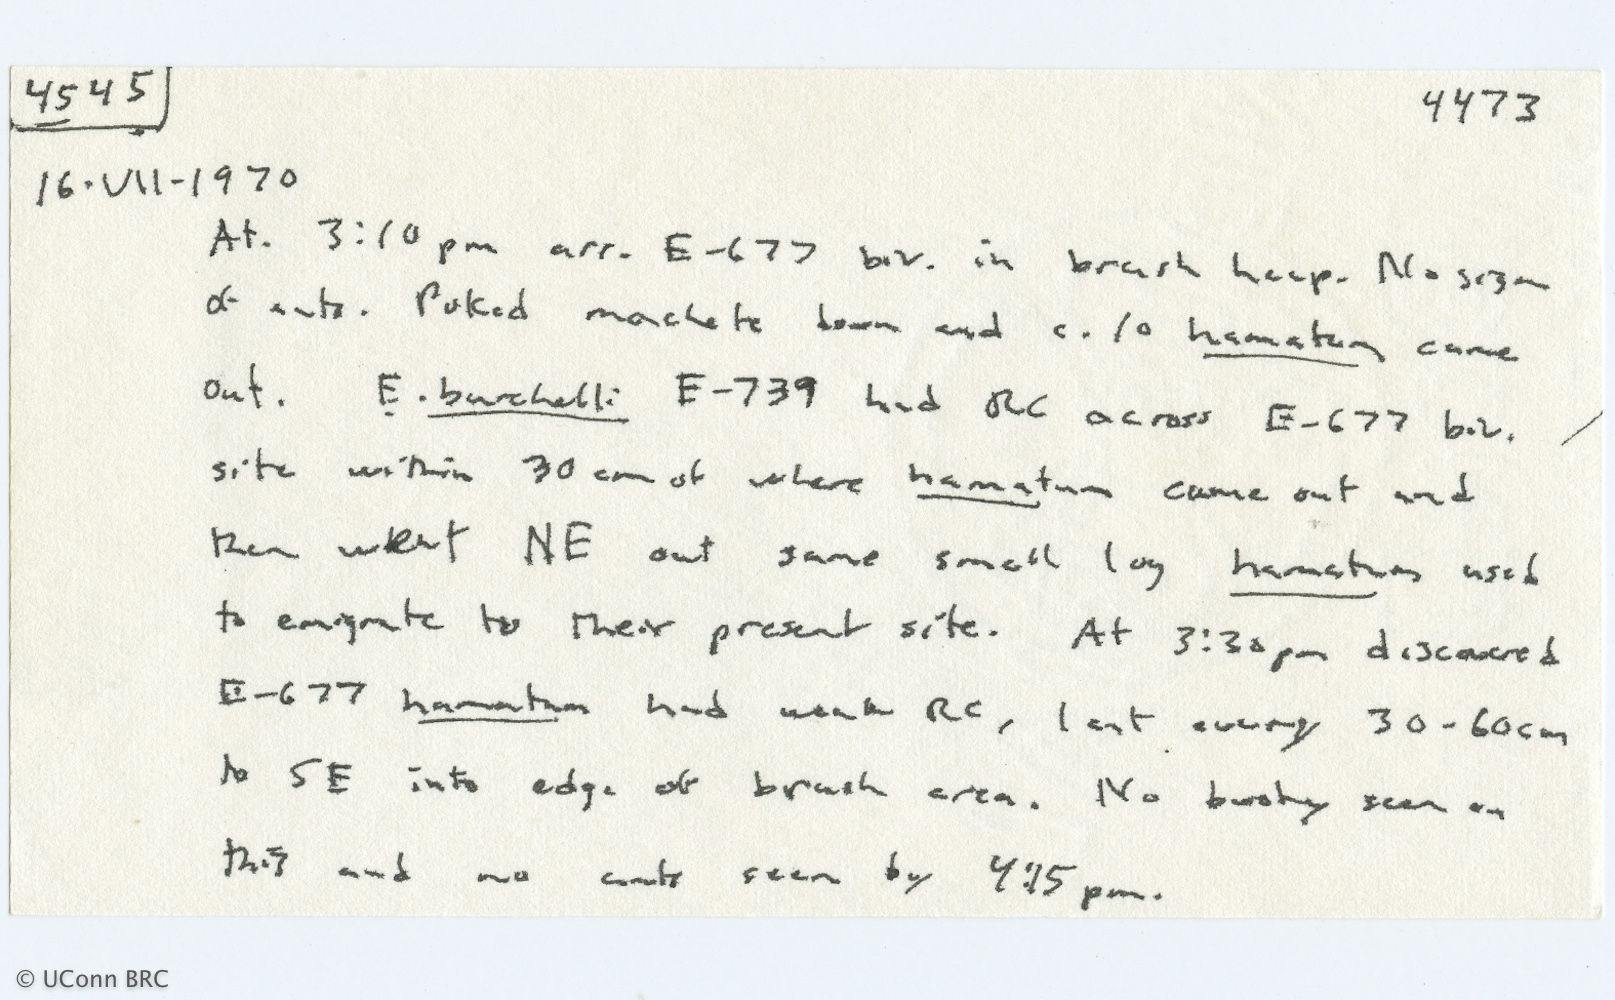 4545
4473
16·VII-1970
At. 3:10 pm arr. E-677 biv. in brush heap. No sign
of ants. Poked machete down and c. 10 hamatum came
out. E. burchelli E-739 had RC across E-677 biv.
site within 30 cm of where hamatum came out and
then went NE out same small log hamatum used
to emigrate to their present site. At 3:30 pm discovered
E-677 hamatum had weak RC, 1 ant every 30-60cm
to SE into edge of brush area. No booty seen on
this and no ants seen by 4:15 pm.
© UConn BRC